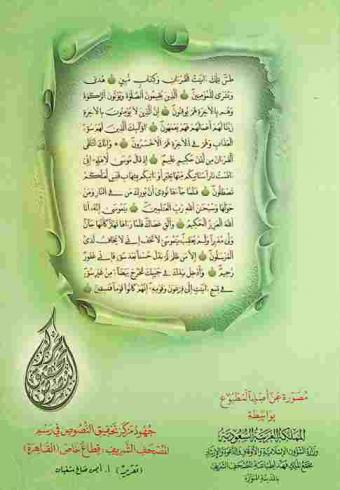 طسٓ تِلْكَ ءَايَٰتُ ٱلْقُرْءَانِ وَكِتَابٍ مُّبِينٍ ١ هُدًى
وَبُشْرَىٰ لِلْمُؤْمِنِينَ ٢ ٱلَّذِينَ يُقِيمُونَ ٱلصَّلَوٰةَ وَيُؤْتُونَ ٱلزَّكَوٰةَ
وَهُم بِٱلْءَاخِرَةِ هُمْ يُوقِنُونَ ٣ إِنَّ ٱلَّذِينَ لَا يُؤْمِنُونَ بِٱلْءَاخِرَةِ
زَيَّنَّا لَهُمْ أَعْمَٰلَهُمْ فَهُمْ يَعْمَهُونَ ٤ أُو۟لَٰٓئِكَ ٱلَّذِينَ لَهُمْ سُوٓءُ
ٱلْعَذَابِ وَهُمْ فِى ٱلْءَاخِرَةِ هُمُ ٱلْأَخْسَرُونَ ٥ وَإِنَّكَ لَتُلَقَّى
ٱلْقُرْءَانَ مِن لَّدُنْ حَكِيمٍ عَلِيمٍ ٦ إِذْ قَالَ مُوسَىٰ لِأَهْلِهِۦٓ إِنِّىٓ
ءَانَسْتُ نَارًا سَـَٔاتِيكُم مِّنْهَا بِخَبَرٍ أَوْ ءَاتِيكُم بِشِهَابٍ قَبَسٍ لَّعَلَّكُمْ
تَصْطَلُونَ ٧ فَلَمَّا جَآءَهَا نُودِىَ أَنۢ بُورِكَ مَن فِى ٱلنَّارِ وَمَنْ
حَوْلَهَا وَسُبْحَٰنَ ٱللَّهِ رَبِّ ٱلْعَٰلَمِينَ ٨ يَٰمُوسَىٰٓ إِنَّهُۥٓ أَنَا
ٱللَّهُ ٱلْعَزِيزُ ٱلْحَكِيمُ ٩ وَأَلْقِ عَصَاكَ فَلَمَّا رَءَاهَا تَهْتَزُّ كَأَنَّهَا جَآنٌّ
وَلَّىٰ مُدْبِرًا وَلَمْ يُعَقِّبْ يَٰمُوسَىٰ لَا تَخَفْ إِنِّى لَا يَخَافُ لَدَىَّ
ٱلْمُرْسَلُونَ ١٠ إِلَّا مَن ظَلَمَ ثُمَّ بَدَّلَ حُسْنًۢا بَعْدَ سُوٓءٍ فَإِنِّى غَفُورٌ
رَّحِيمٌ ١١ وَأَدْخِلْ يَدَكَ فِى جَيْبِكَ تَخْرُجْ بَيْضَآءَ مِنْ غَيْرِ سُوٓءٍ
فِى تِسْعِ ءَايَٰتٍ إِلَىٰ فِرْعَوْنَ وَقَوْمِهِۦٓ إِنَّهُمْ كَانُوا۟ قَوْمًا فَٰسِقِينَ ١٢
مصورة عن أصل المطبوع
بواسطة
المملكة العربية السعودية
وزارة الشؤون الإسلامية والأوقاف والدعوة والإرشاد
مجمع الملك فهد لطباعة المصحف الشريف
بالمدينة المنورة
جهود مركز تحقيق النصوص في رسم
المصحف الشريف، قطاع خاص (القاهرة)
أ. أيمن صالح شعبان